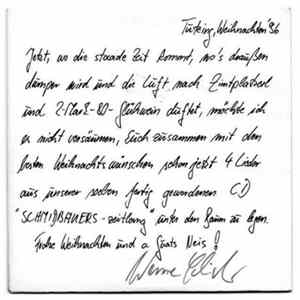 Tutzing, Weihnachten '96
Jetzt, wo die staade Zeit kommt, wo's draußen
damper wird und die Luft nach Zimtplatzerl
und 2-Mark-80-Glühwein duftet, möchte ich
es nicht versäumen, Euch zusammen mit den
besten Weihnachtswünschen schon jetzt 4 Lieder
aus unserer soeben fertig gewordenen CD
"SCHMIDBAUERS-zeitlang" unter den Baum zu legen.
Frohe Weihnachten und a guats Neis!
Werner